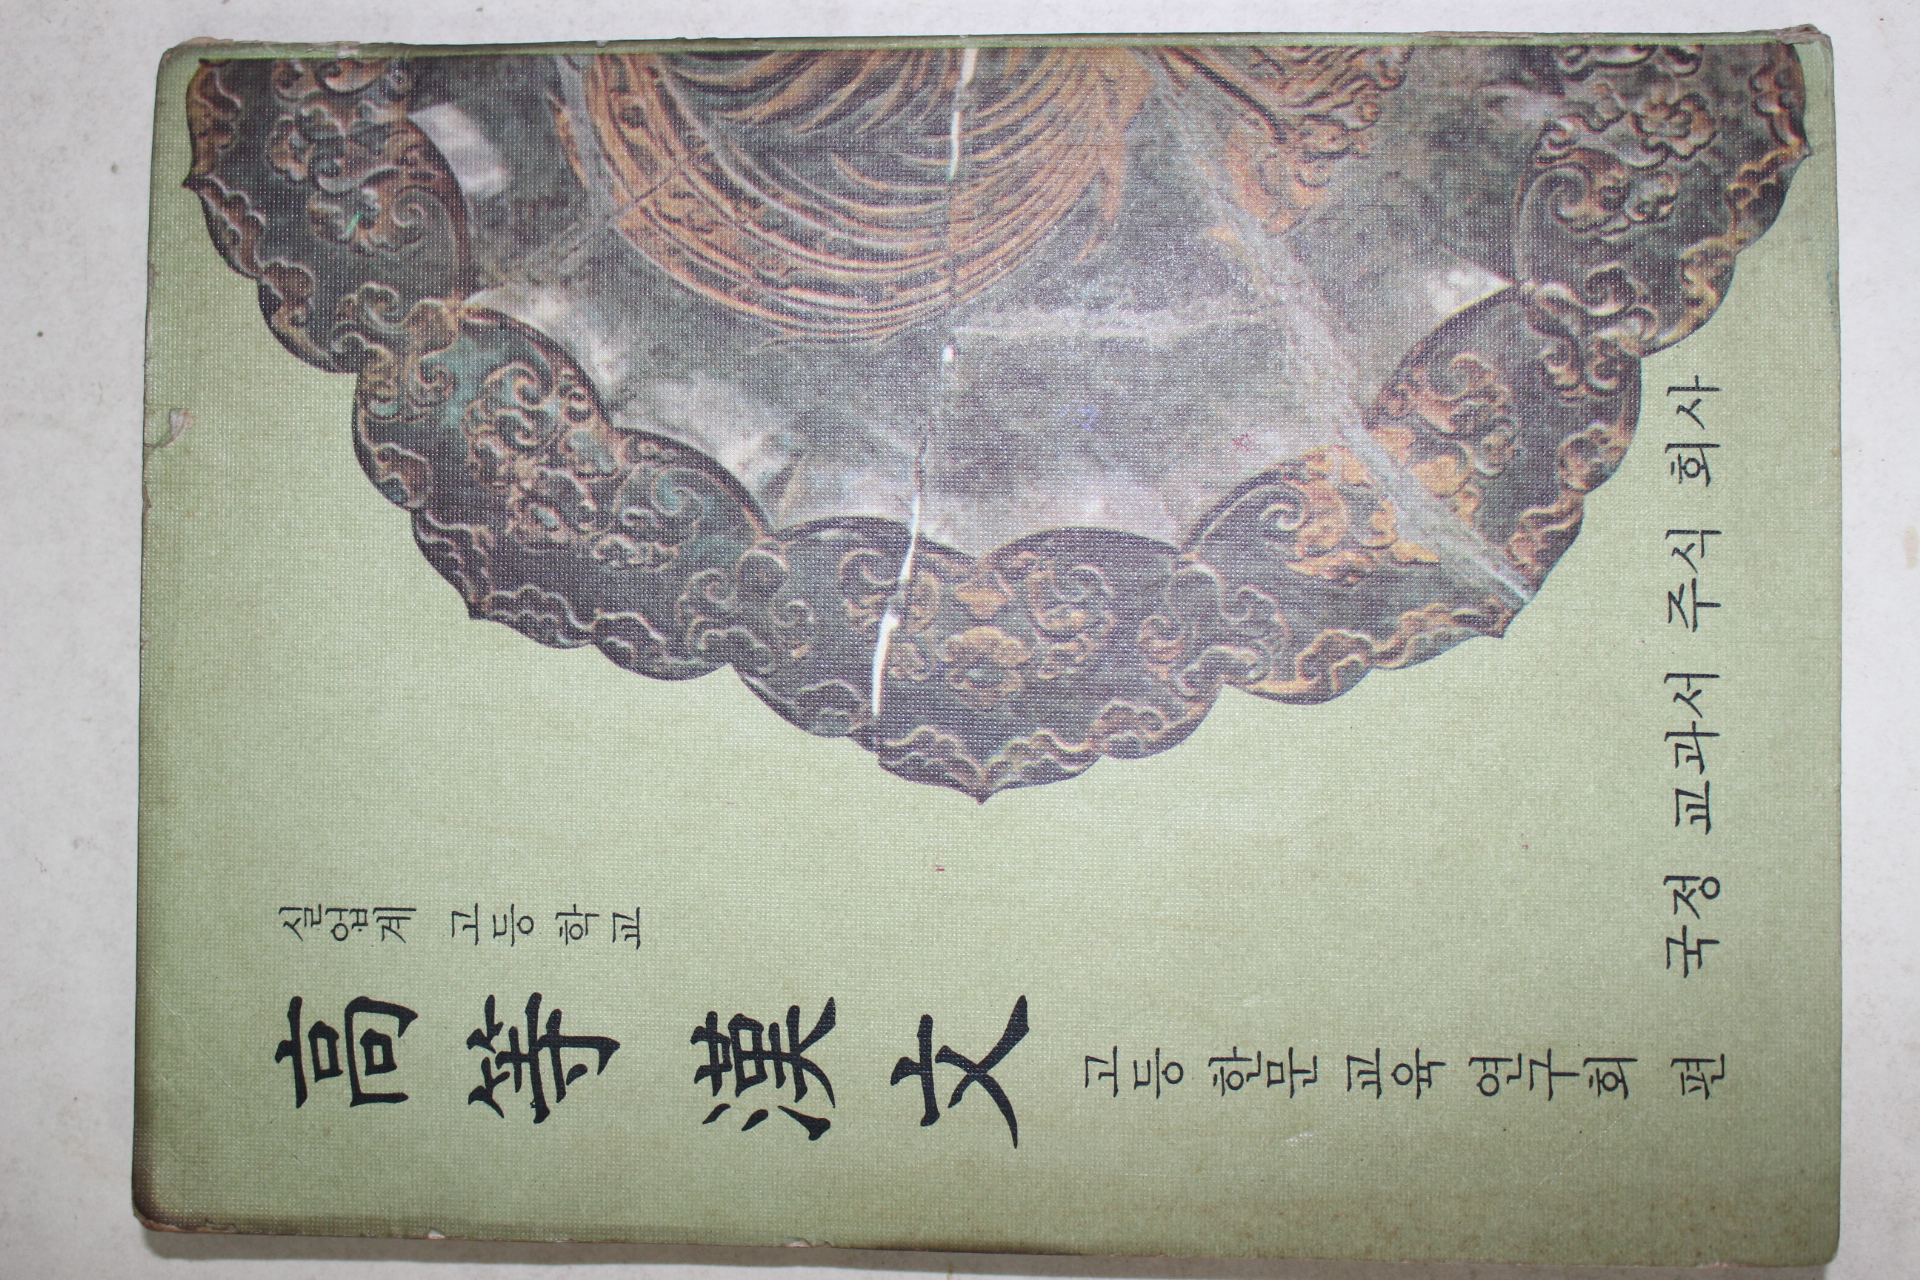 실업계 고등 학교
高等漢文
고등 한문 교육 연구회 편
국정 교과서 주식 회사